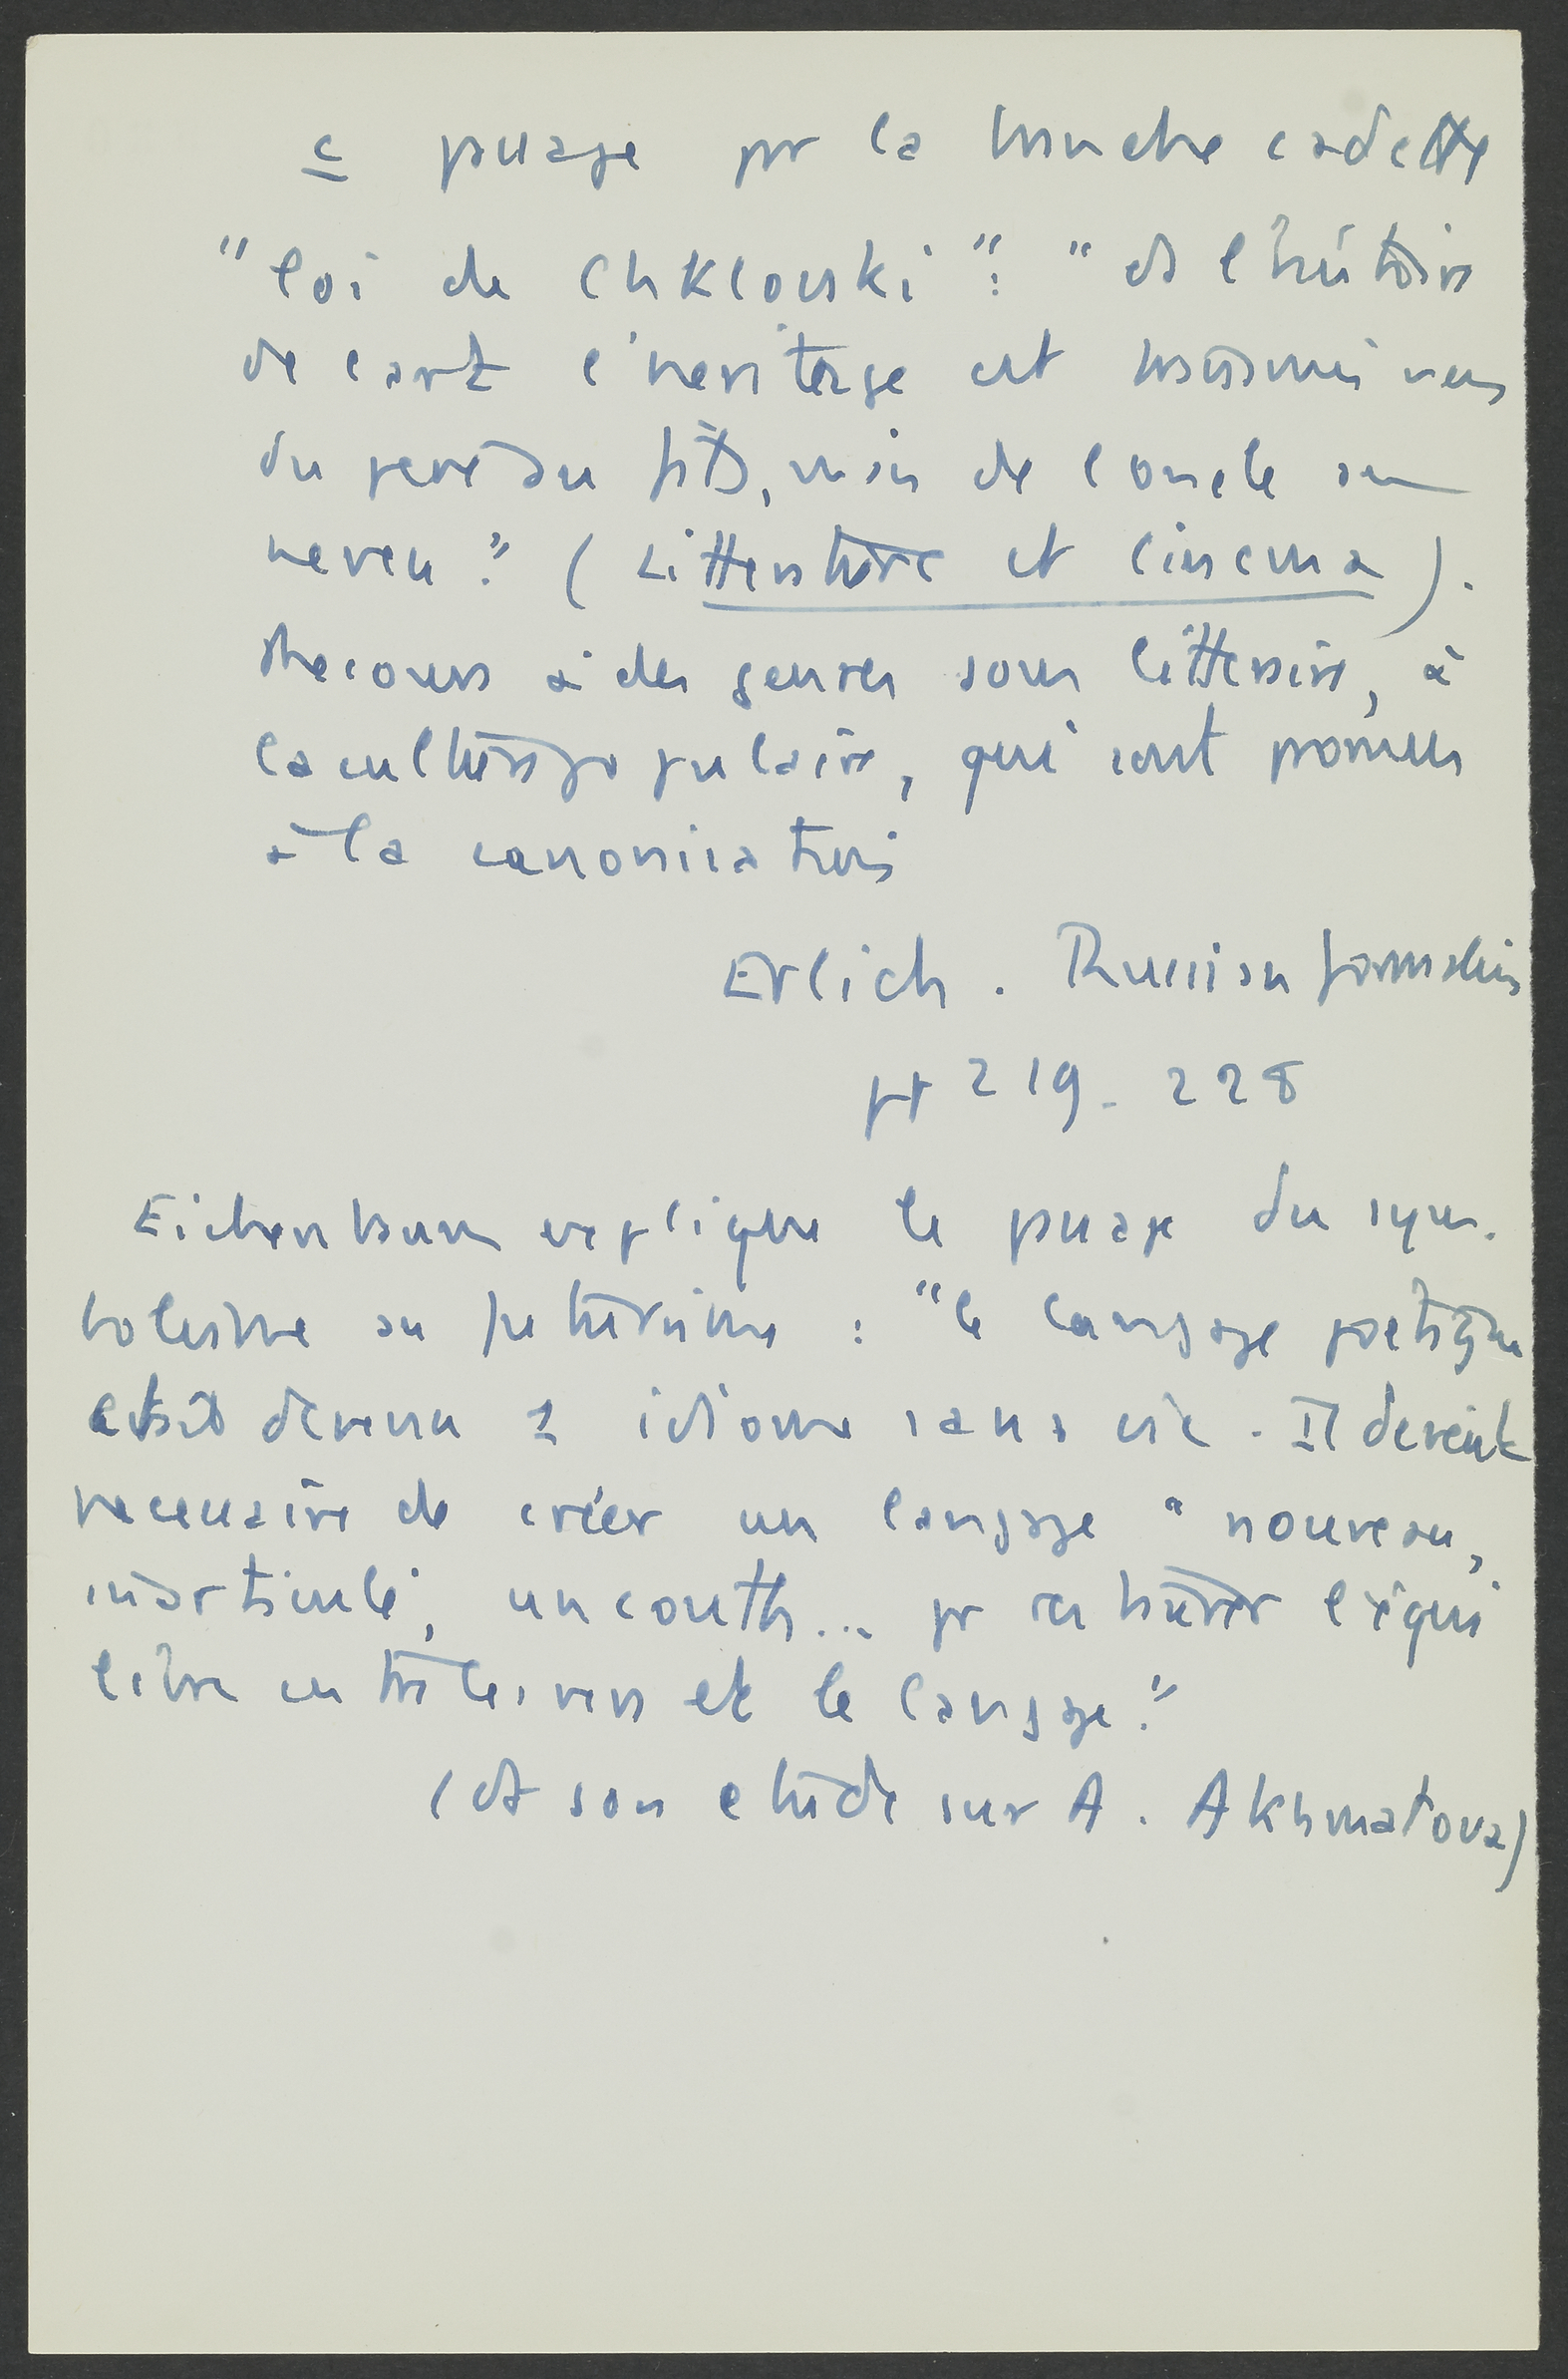 c passage par la branche cadette
"loi de Chklovski": "ds l'histoire
de l'art l'heritage est transmis non
du pere au fils, mais de l'oncle au
neveu." (Litterature et cinema).
Recours à des genres sous litteraires, à
la culture populaire, qui sont promus
à la canonisation
Erlich. Russian formalism
pp 219-228
Eichenbaum explique le passage du sym-
bolisme au futurisme : "le langage poetique
etait devenu 1 idiome sans vie. Il devient
necessaire de créer un langage "nouveau,
inarticulé, uncouth... pr restaurer l'équi
libre entre le vers et le langage."
(ds son etude sur A. Akhmatova)